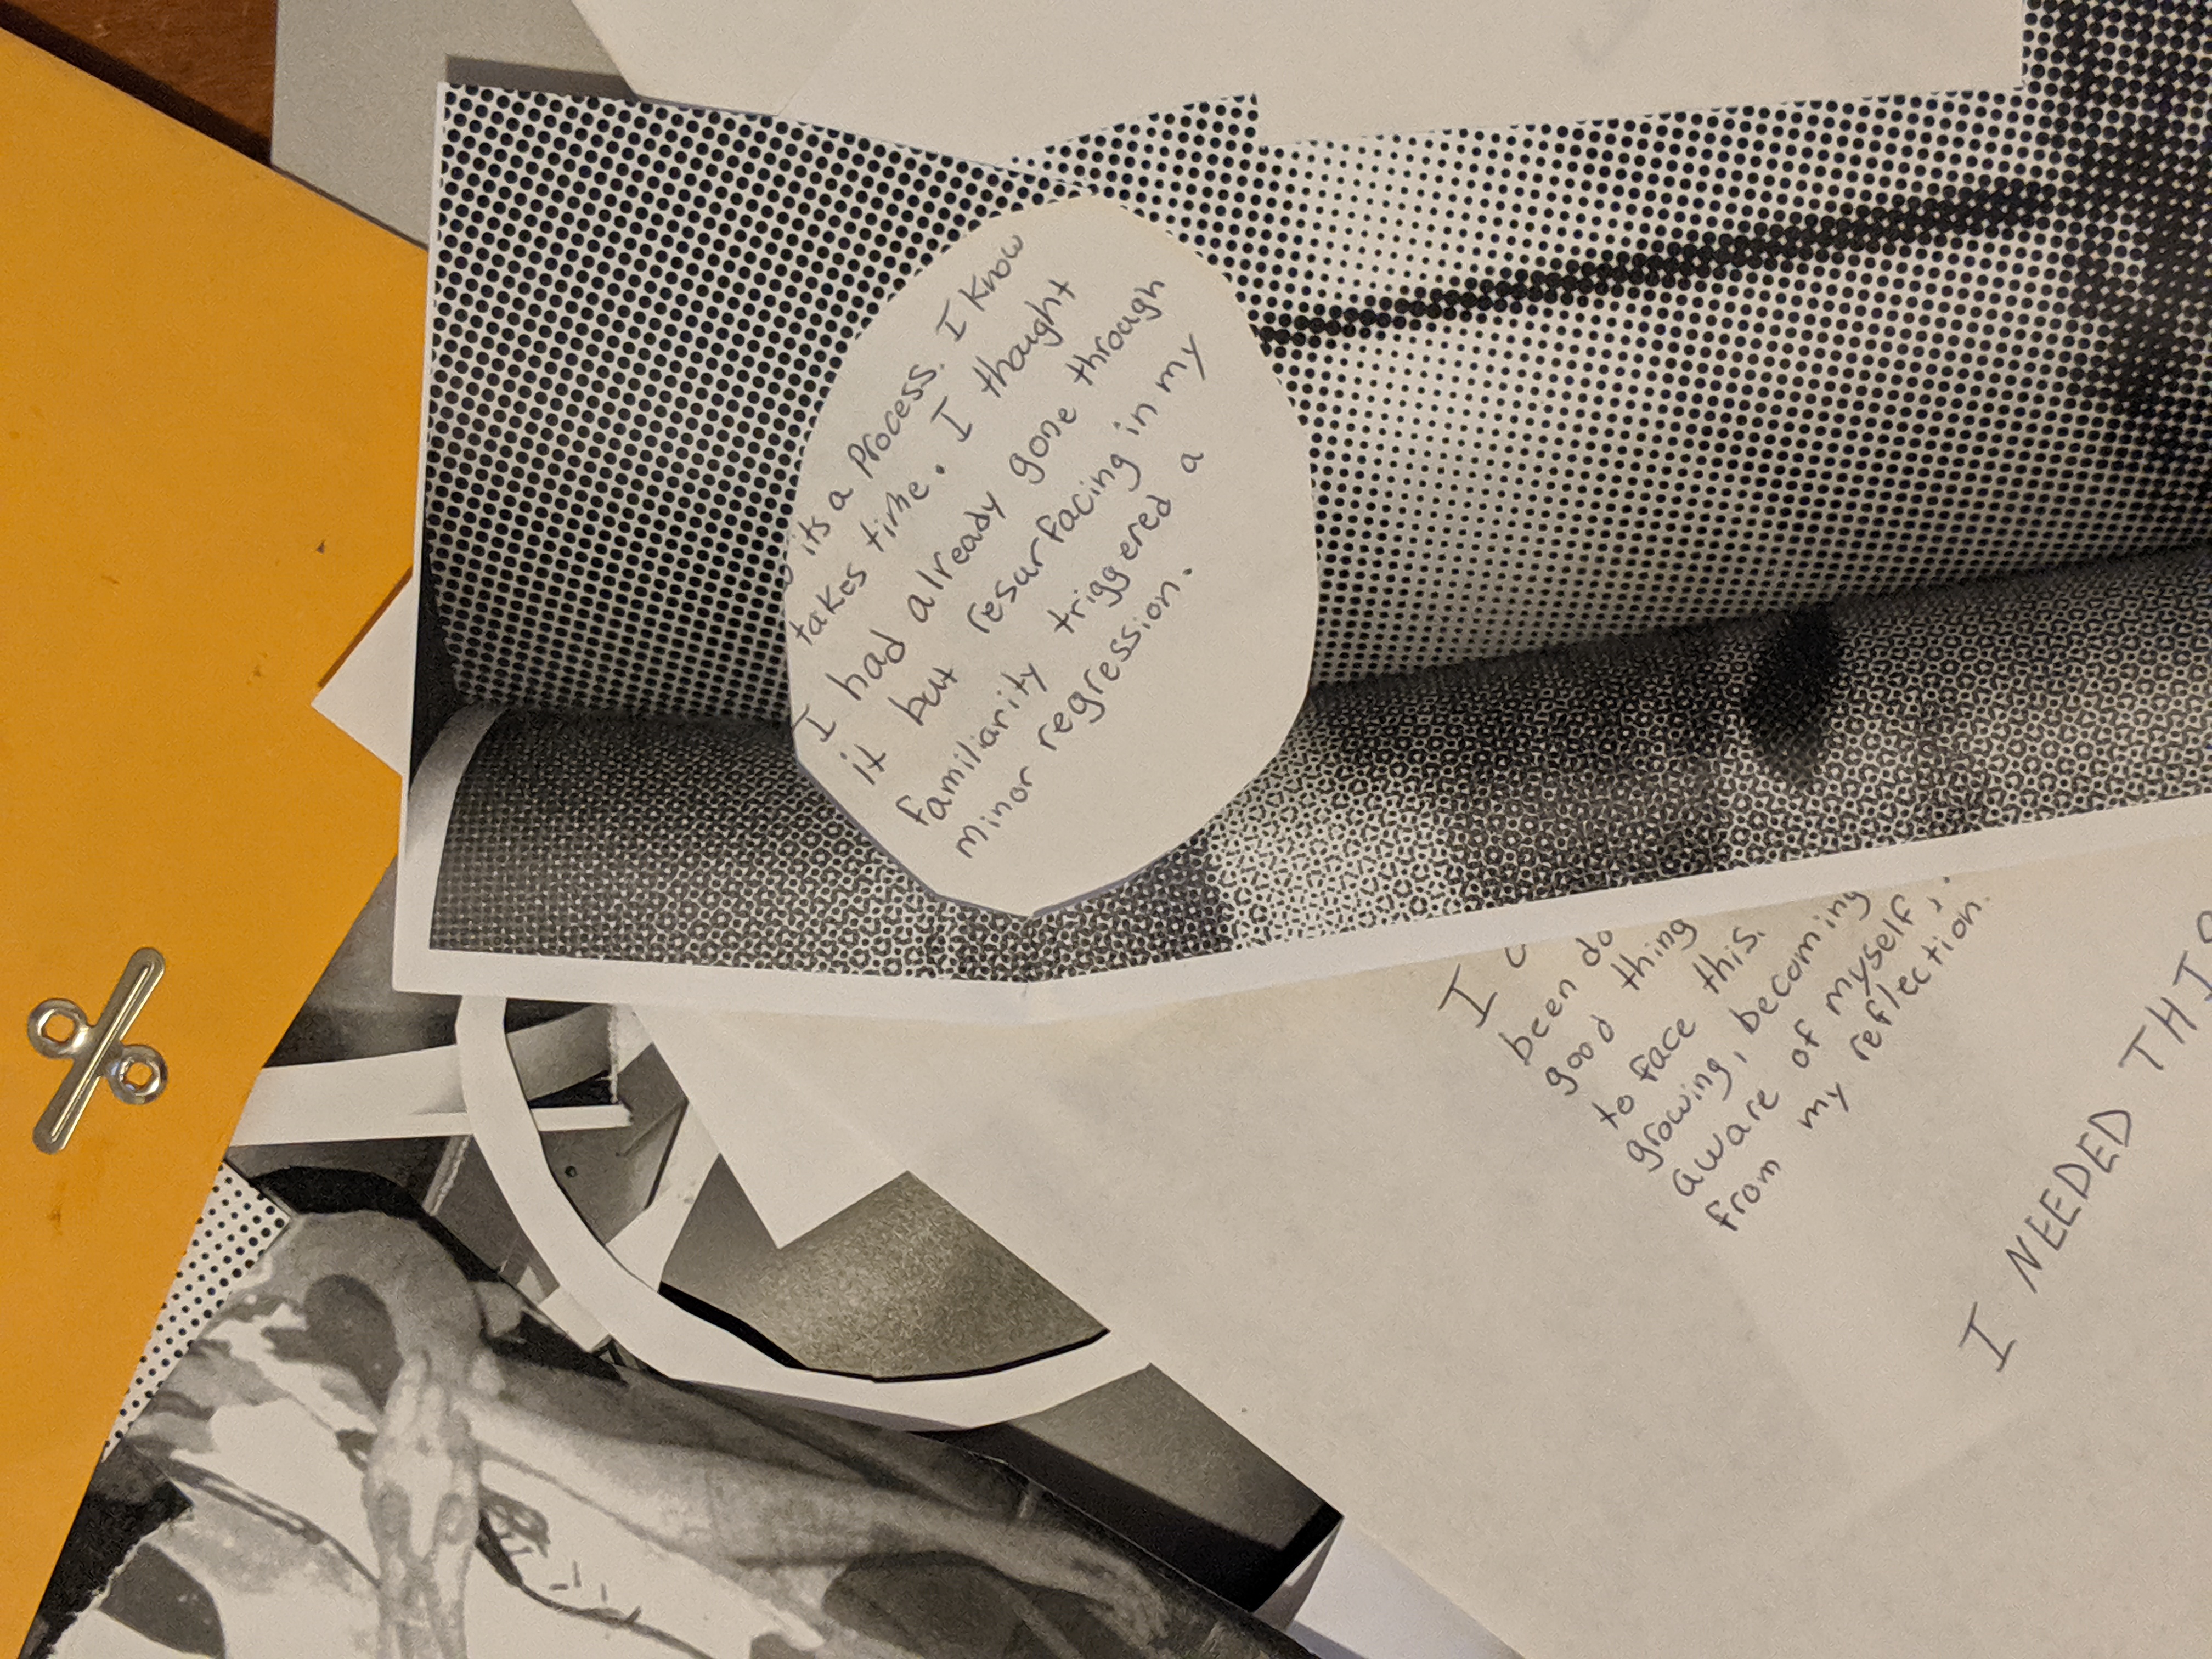 its a process. I know
takes time. I thought
I had already gone through
it but resurfacing in my
familiarity triggered a
minor regression.
I
been do
good thing
to face this.
growing, becoming
aware of myself,
from my reflection.
I NEEDED THIS